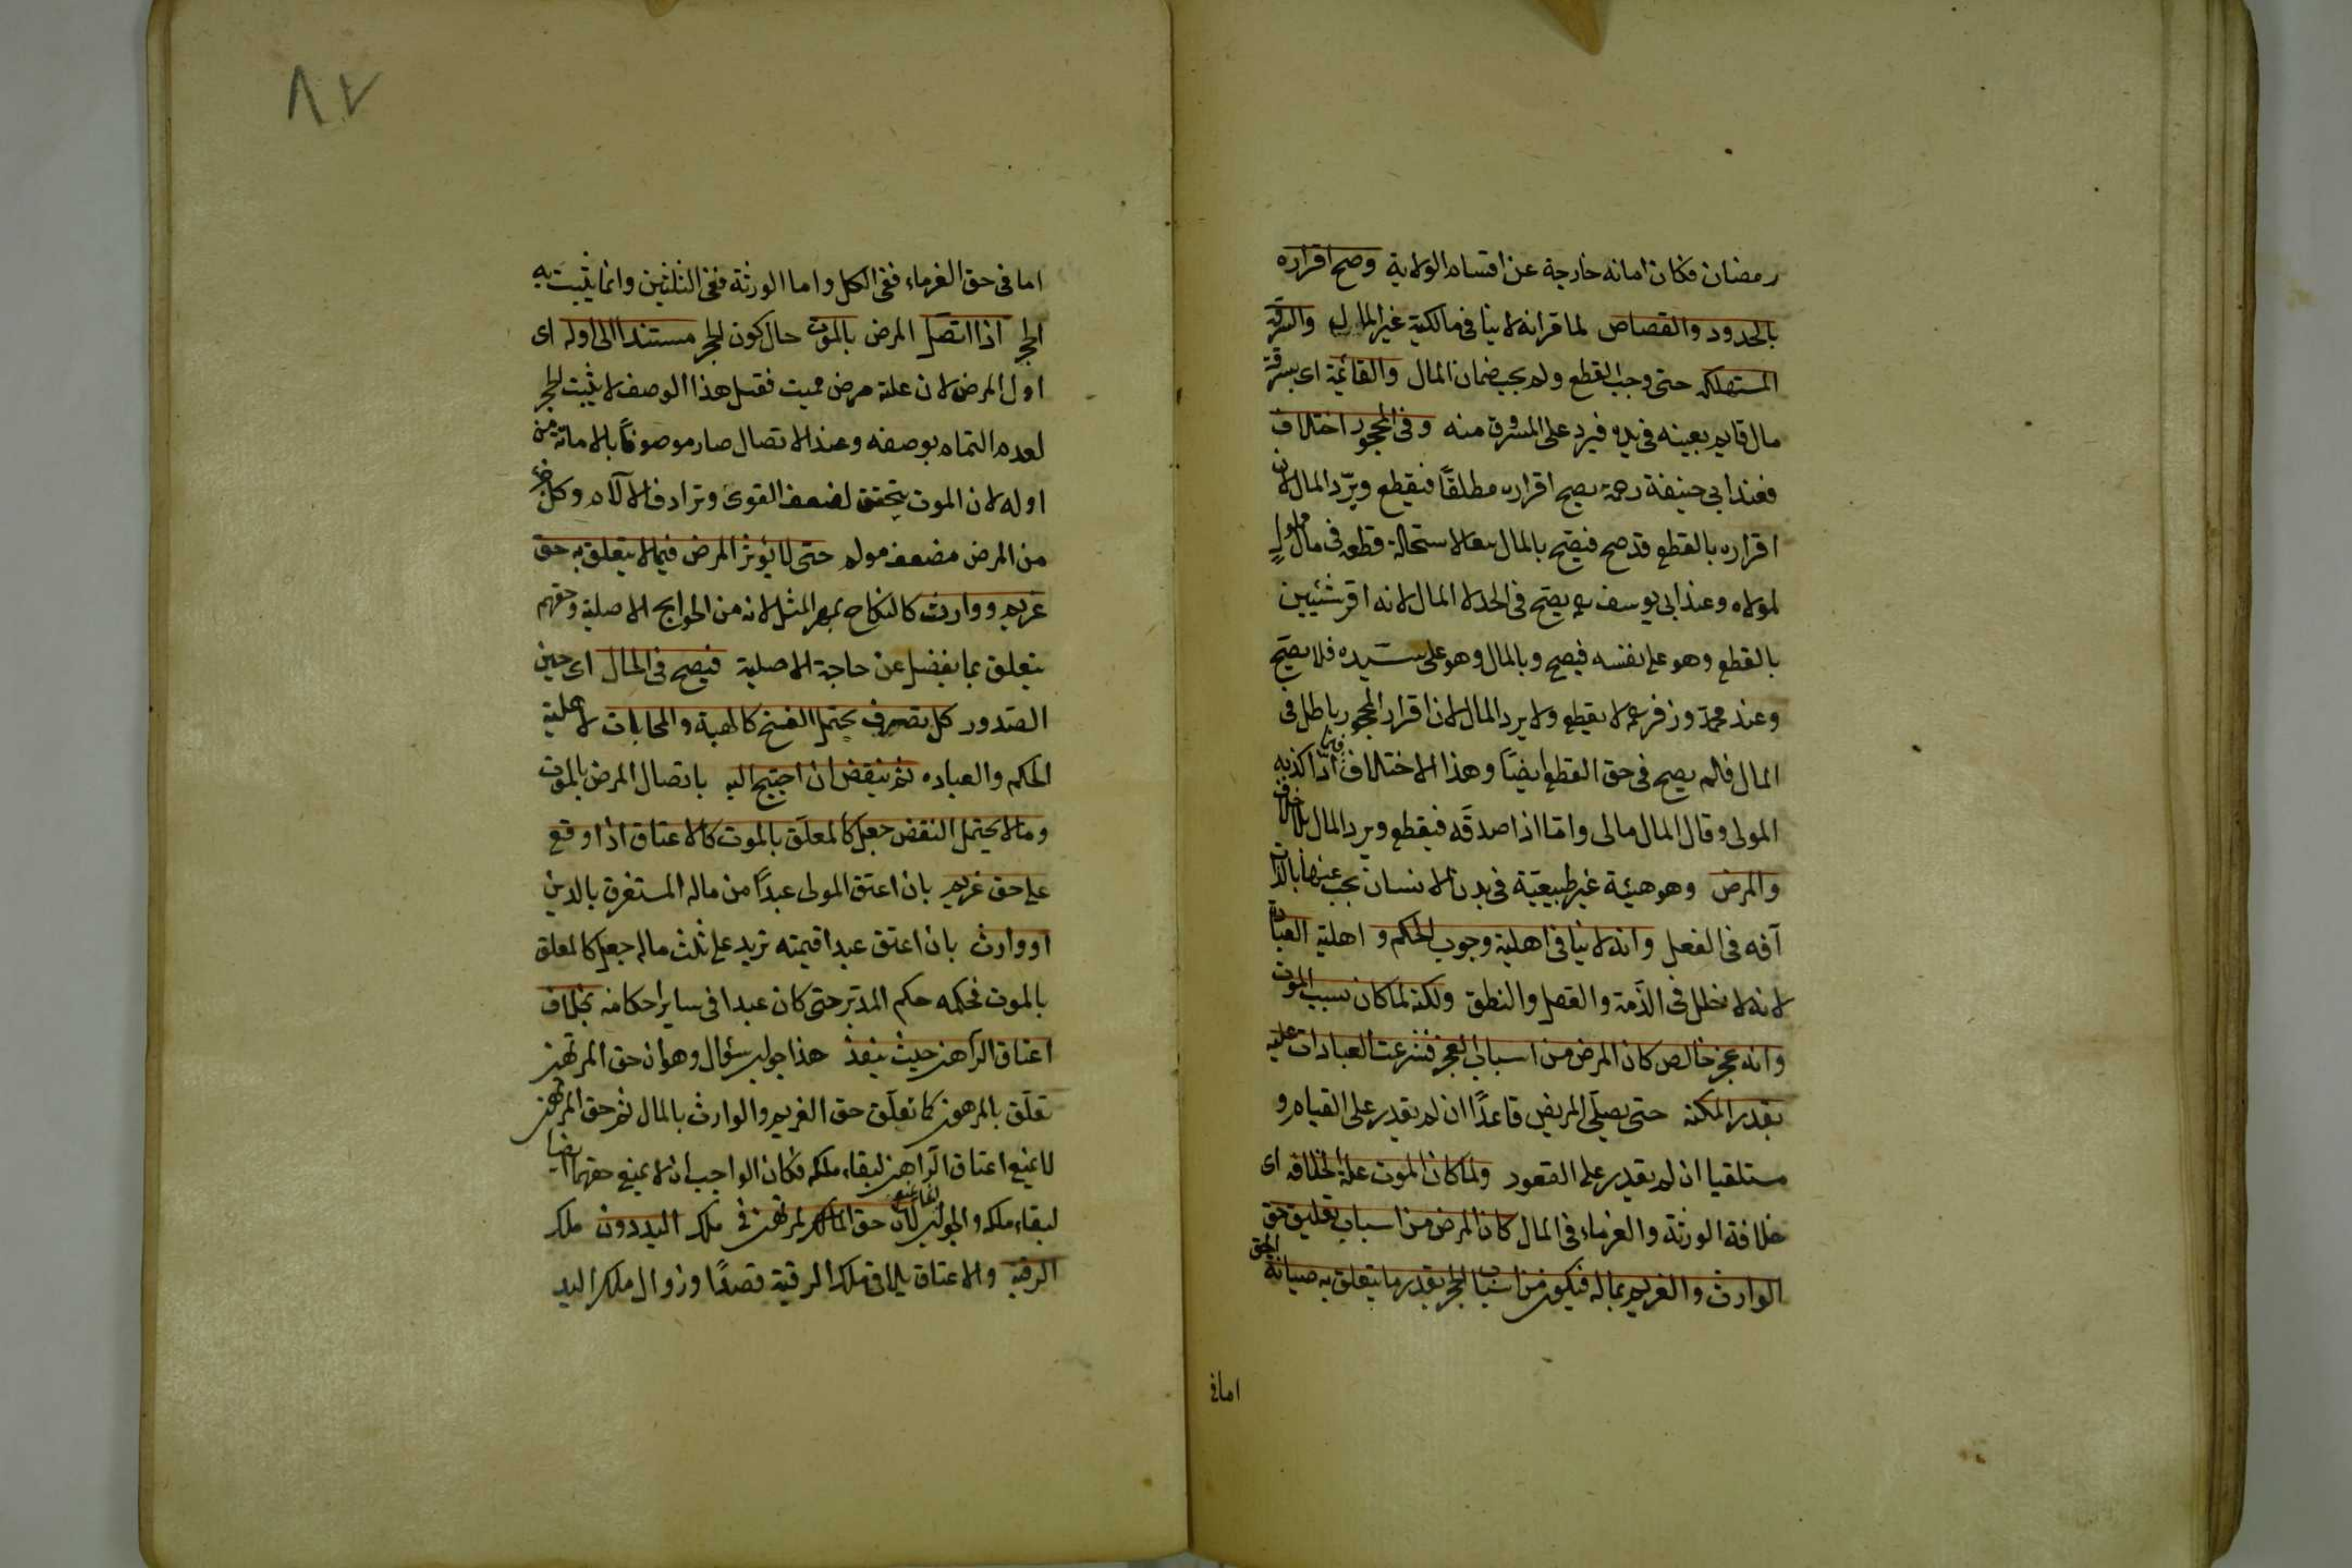 رمضان فكان امانه خارجة عن اقسام الولاية وصح اقراره
بالحدود والقصاص لما قر انه لا ينافى مالكية غير المال والسرقة
المستهلكة حتى وجب القطع ولم يجب ضمان المال والقائمة اى بسرقة
مال قايم بعينه فى يده فيرد على المسروق منه وفى المحجور اختلاف
فعند ابى حنيفة رحمة يصح اقراره مطلقًا فيقطع ويردّ المال لان
اقراره بالقطع قد صح فيصح بالمال تبعا لاستحالة قطعه فى مال مملوك
لمولاه وعند ابى يوسف يصح فى الحد لا المال لانه اقر بشيئين
بالقطع وهو على نفسه فيصح وبالمال وهو على سيّده فلا يصح
وعند محمد وزفر لا يقطع ولا يرد المال لان اقرار المحجور باطل فى
المال فالم يصح فى حق القطع ايضًا وهذا الاختلاف فيما اذا كذبه
المولى وقال المال مالى وامّا اذا صدقه فيقطع ويرد المال بلا خلاف
والمرض وهو هيئة غير طبيعيّة فى بدن الانسان يجب عنها بالذات
آفه فى الفعل وانه لا ينافى اهلية وجوب الحكم و اهلية العبادة
لانه لا يخلل فى الذّمة والعقل والنطق ولكنه لما كان سبب الموت
وانه عجز خالص كان المرض من اسباب العجز فشرعت العبادات عليه
بقدر المكنة حتى يصلّى المريض قاعدًا ان لم يقدر على القيام و
مستلقيا ان لم يقدر على القعود ولما كان الموت علة الخلافه اى
خلافة الورثة والغرماء فى المال كان المرض من اسباب تعليق حق
الوارث والغريم بماله فيكون من اسباب الحجر بقدر ما يتعلق به صيانة الحق
اما فى
٨٢
اما فى حق الغرماء ففى الكل واما الورثة ففى الثلثين وانما يثبت به
الحجر اذا اتصل المرض بالموت حال كون الحجر مستندا الى اوله اى
اول المرض لان علته مرض مميت فقبل هذا الوصف لا يثبت الحجر
لعدم التمام بوصفه وعند الاتصال صار موصوفًا بالاماتة من
اوله لان الموت يتحقق لضعف القوى وترادف الآلام وكل جزء
من المرض مضعف مولم حتى لا يؤثر المرض فيما لا يتعلق به حق
غريم ووارث كالنكاح بمهر المثل لانه من الحوايج الاصلية وحقهم
يتعلق بما يفضل عن حاجة الاصلية فيصح فى الحال اى حين
الصّدور كل تصرف يحتمل الفسخ كالهبة والمحابات لاهلية
الحكم والعباره ثم ينقض ان احتيج اليه باتصال المرض بالموت
وما لا يحتمل النقض جعل كالمعلّق بالموت كالاعتاق اذا وقع
على حق غريم بان اعتق المولى عبدًا من ماله المستغرق بالدين
او وارث بان اعتق عبدا قيمته تزيد على ثلث ماله جعل كالمعلق
بالموت فحكمه حكم المدبّر حتى كان عبدا فى ساير احكامه بخلاف
اعتاق الرّاهن حيث ينفذ هذا جواب سؤال وهو ان حق المرتهن
تعلّق بالمرهون كما تعلّق حق الغريم والوارث بالمال ثم حق المرتهن
لا يمنع اعتاق الرّاهن لبقاء ملكه فكان الواجب ان لا يمنع حقهما ايضا
لبقاء ملكه والجواب لان حق المرتهن فى ملك اليد دون ملك
الرقبة والاعتاق يلاقى ملك الرقبة قصدًا وزوال ملك اليد